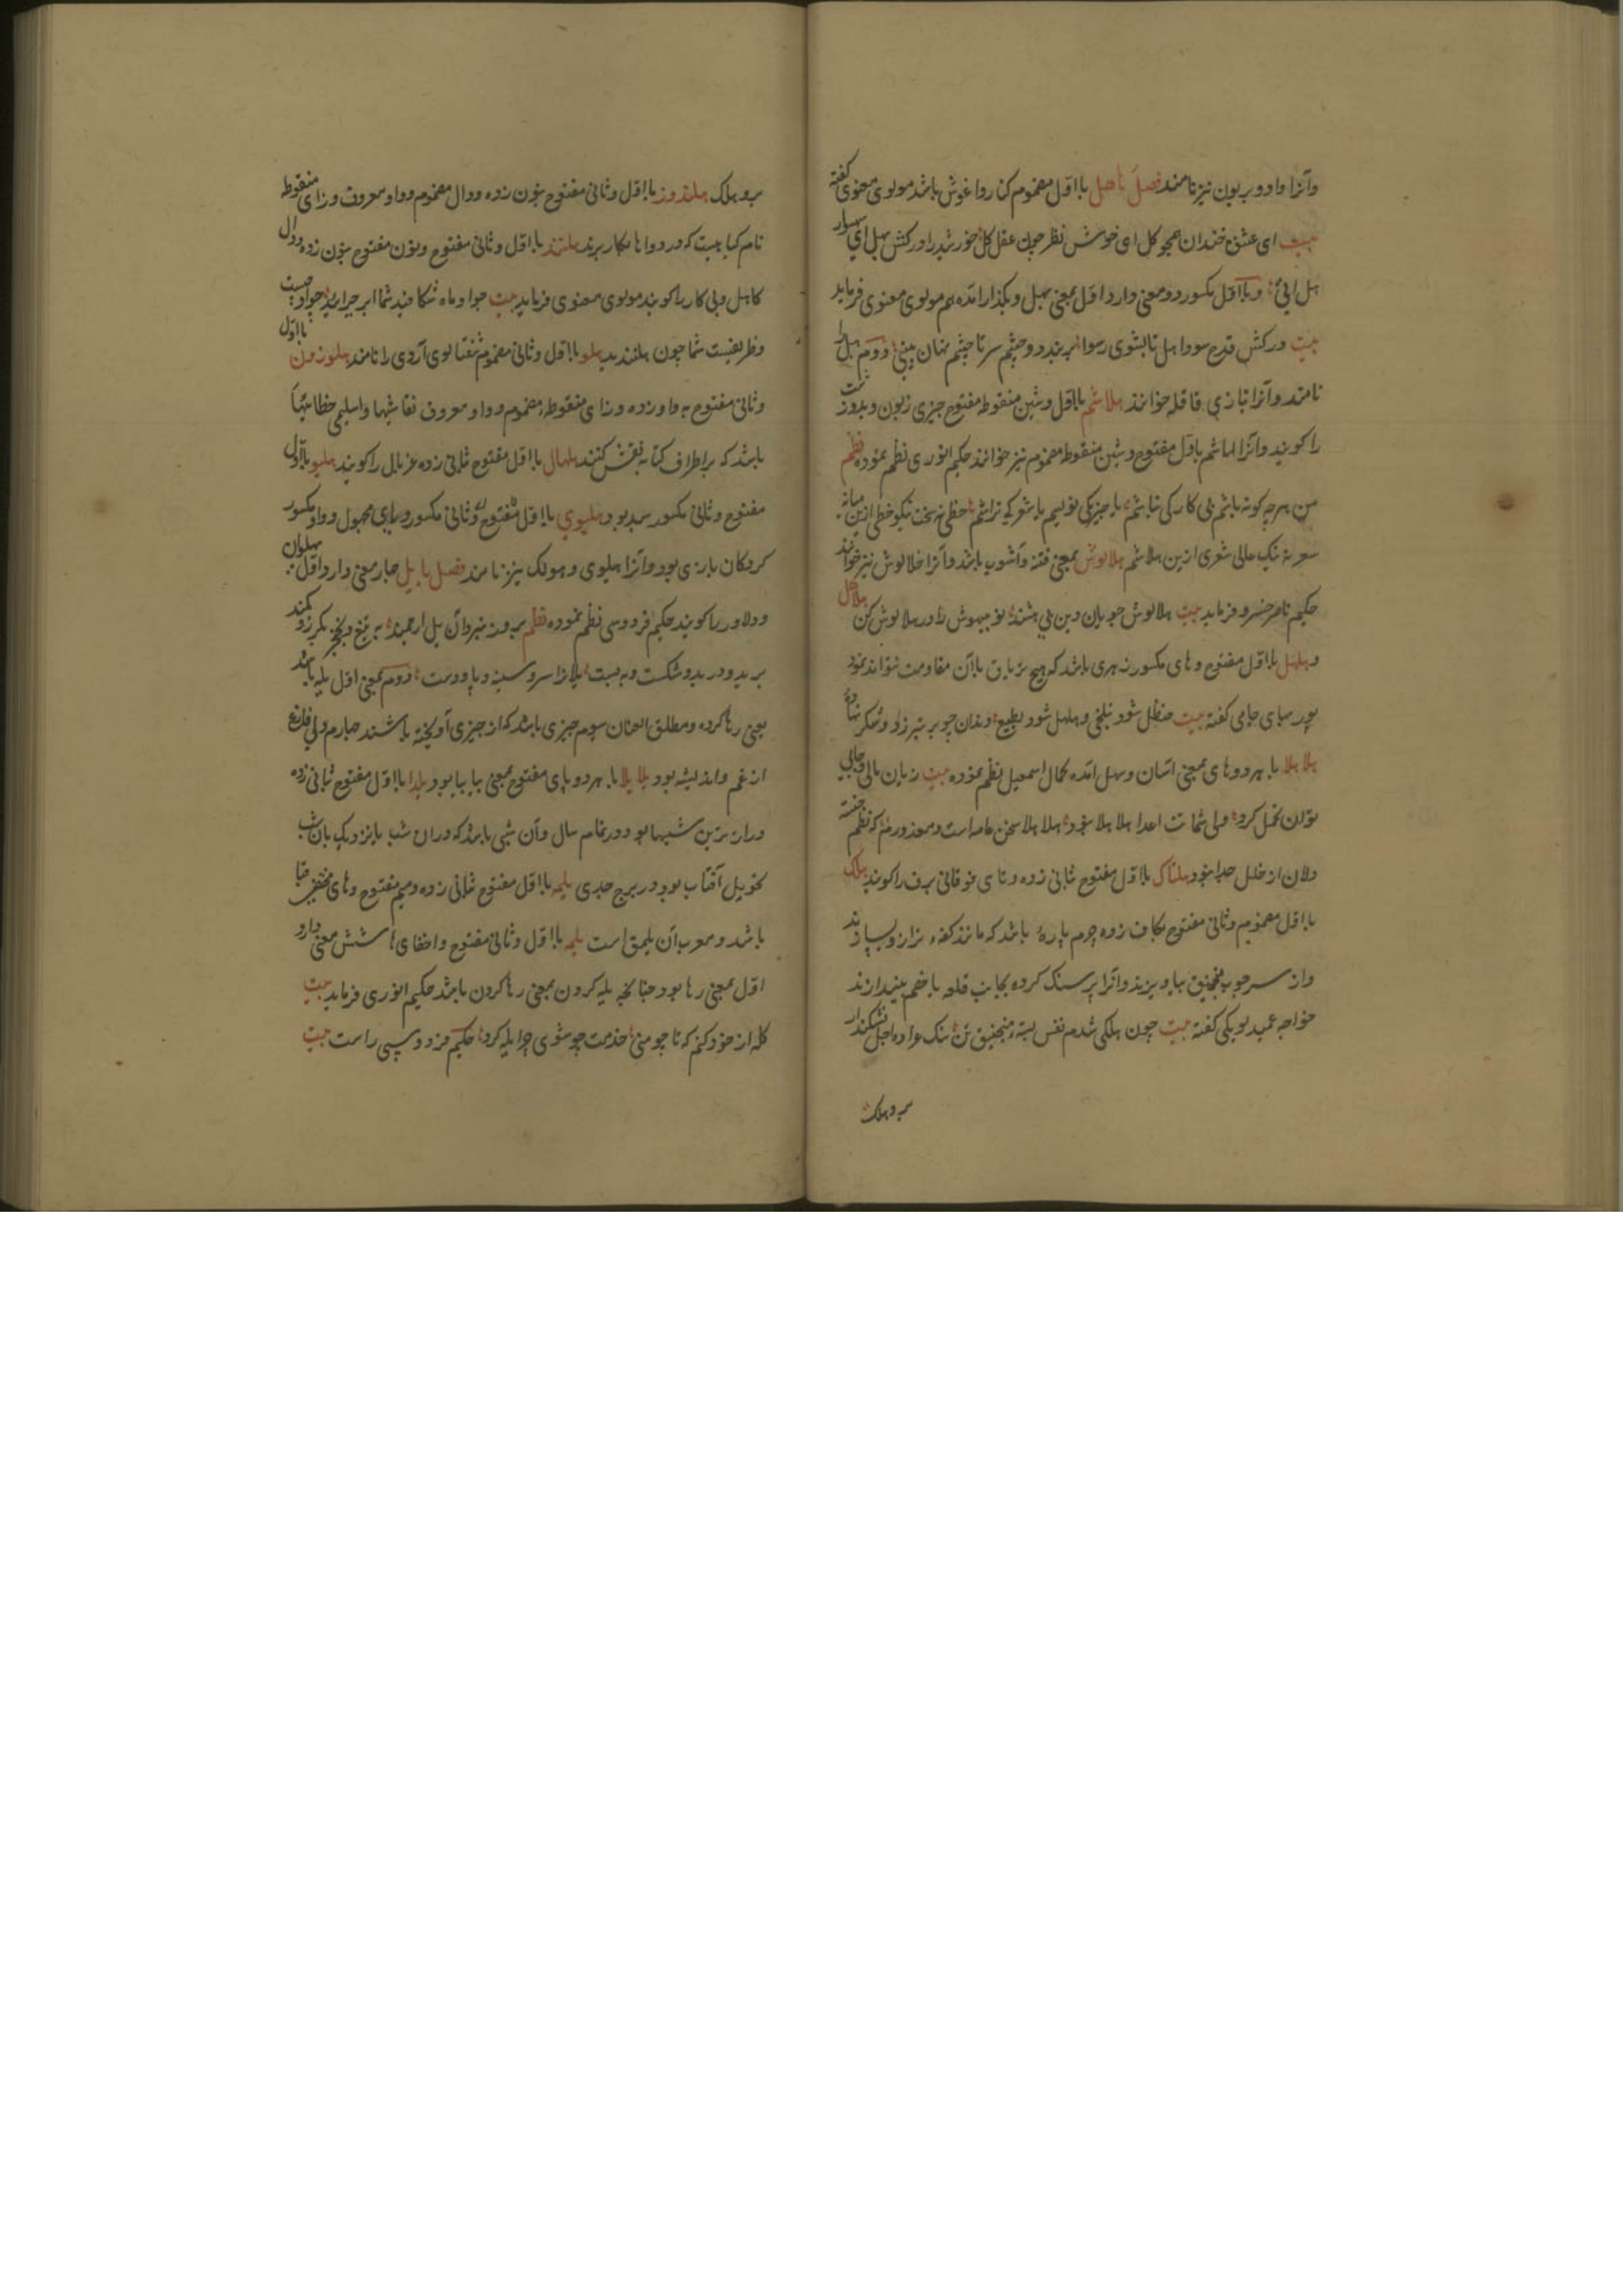 وآنرا واد وبربون نیز نامند فصل هاهل با اول مضموم کنار و اغوش باشد مولوی معنوی گفته
بیت ای عشق خندان همچو گل ای خوش نظر چون عقل کل خورشید را درکش بهل ای شهسوار
هل اتی و با اول مکسور دو معنی دارد اول بمعنی بهل و بگذار آمده هم مولوی معنوی فرماید
بیت درکش قدح سودا هل تا بشوی رسوا بربند دو چشم سر تا چشم نهان بینی دوم هیل را
نامند وآنرا بتازی قاقله خوانند هلاشم با اول وشین منقوطه مفتوح چیزی زبون و بد و زشت
را گویند وآنرا هماشم با اول مفتوح وشین منقوطه مضموم نیز خوانند حکیم انوری نظم نموده نظم
من هرچه گونه باشم بی کارکی نباشم یا چیزکی نویسم یا شعرکی تراشم خطی نه سخت نیکو خطی ازین میانه
شعر نه نیک عالی شعری ازین هلاشم هلالوش بمعنی فتنه و آشوب باشد وآنرا خلالوش نیز خوانند
حکیم ناصر خسرو فرماید بیت هلالوش جویان دین بی هشند تو بیهوش را در هلالوش کن هلاهل
وهلهل با اول مفتوح وهای مکسور زهری باشد که هیچ تریاق با آن مقاومت نتواند نمود
پور بهای جامی گفته بیت حنظل شود بتلخی و هلهل شود بطبع دندان چو بر تبرزد و شکر نهاده
هلا هلا با هر دو های بمعنی آسان وسهل آمده کمال اسمعیل نظم نموده بیت زیان مالی و جانی
توان تحمل کرد ولی شماتت اعدا هلا هلا نبود هلا هلا سخن عامه است و معذورم که نظم خفته
دلان از خلل جدا نبود هلتاک با اول مفتوح ثانی زده وتای فوقانی برف را گویند هلک
با اول مضموم وثانی مفتوح بکاف زده چرم پاره باشد که مانند کفه ترازو بسازند
واز سر چوب منجنیق بیاویزند وآنرا پر سنک کرده بجانب قلعه یا خصم بیندازند
خواجه عمید لویکی گفته بیت چون هلکی شدم نفس بسته منجنیق تن سنک عراده اجل بشکندار
بر و هلک
بر و هلک هلندوز با اول وثانی مفتوح بنون زده ودال مضموم وواو معروف وزای منقوطه
نام گیاهیست که در دواها بکار برند هلنند با اول وثانی مفتوح ونون مفتوح بنون زده ودال
کاهل وبی کار را گویند مولوی معنوی فرماید بیت
وظریفیست شما چون هلنندید هلو با اول وثانی مضموم شفتالوی آردی را نامند هلوزن با اول
وثانی مفتوح به واو زده وزای منقوطه مضموم وواو معروف نقاشیها واسلیمی خطاییها
باشد که بر اطراف کتابه نقش کنند هلهال با اول مفتوح ثانی زده غربال را گویند هلیو با اول
مفتوح وثانی مکسور سبد بود هلیوی با اول مفتوح وثانی مکسور ویای مجهول وواو مکسور
گردکان بازی بود وآنرا هلیوی و هولک نیز نامند فصل یا یل چهار معنی دارد اول پهلوان
ودلاور را گویند حکیم فردوسی نظم نموده نظم بروز نبرد آن یل ارجمند به تیغ وخنجر بگرز وکمند
برید ودرید وشکست وببست یلانرا سر وسینه وپا ودست دوم بمعنی اول یله باشد
یعنی رها کرده ومطلق العنان سیوم چیزی باشد که از چیزی آویخته باشند چهارم دلی فارغ
از غم واندیشه بود یلا یلا با هر دو یای مفتوح بمعنی بیا بیا بود یلدا با اول مفتوح ثانی زده
درازترین شبها بود در تمام سال وآن شبی باشد که دران شب یا نزدیک بان شب
تحویل آفتاب بود در برج جدی یلمه با اول مفتوح ثانی زده ومیم مفتوح وهای مختفی قبا
باشد و معرب آن یلمق است یله با اول وثانی مفتوح واخفای ها شش معنی دارد
اول بمعنی رها بود چنانچه یله کردن بمعنی رها کردن باشد حکیم انوری فرماید بیت
گله از خود کنم که تا چو منی خدمت چو توی چرا یله کرد حکیم فردوسی راست بیت